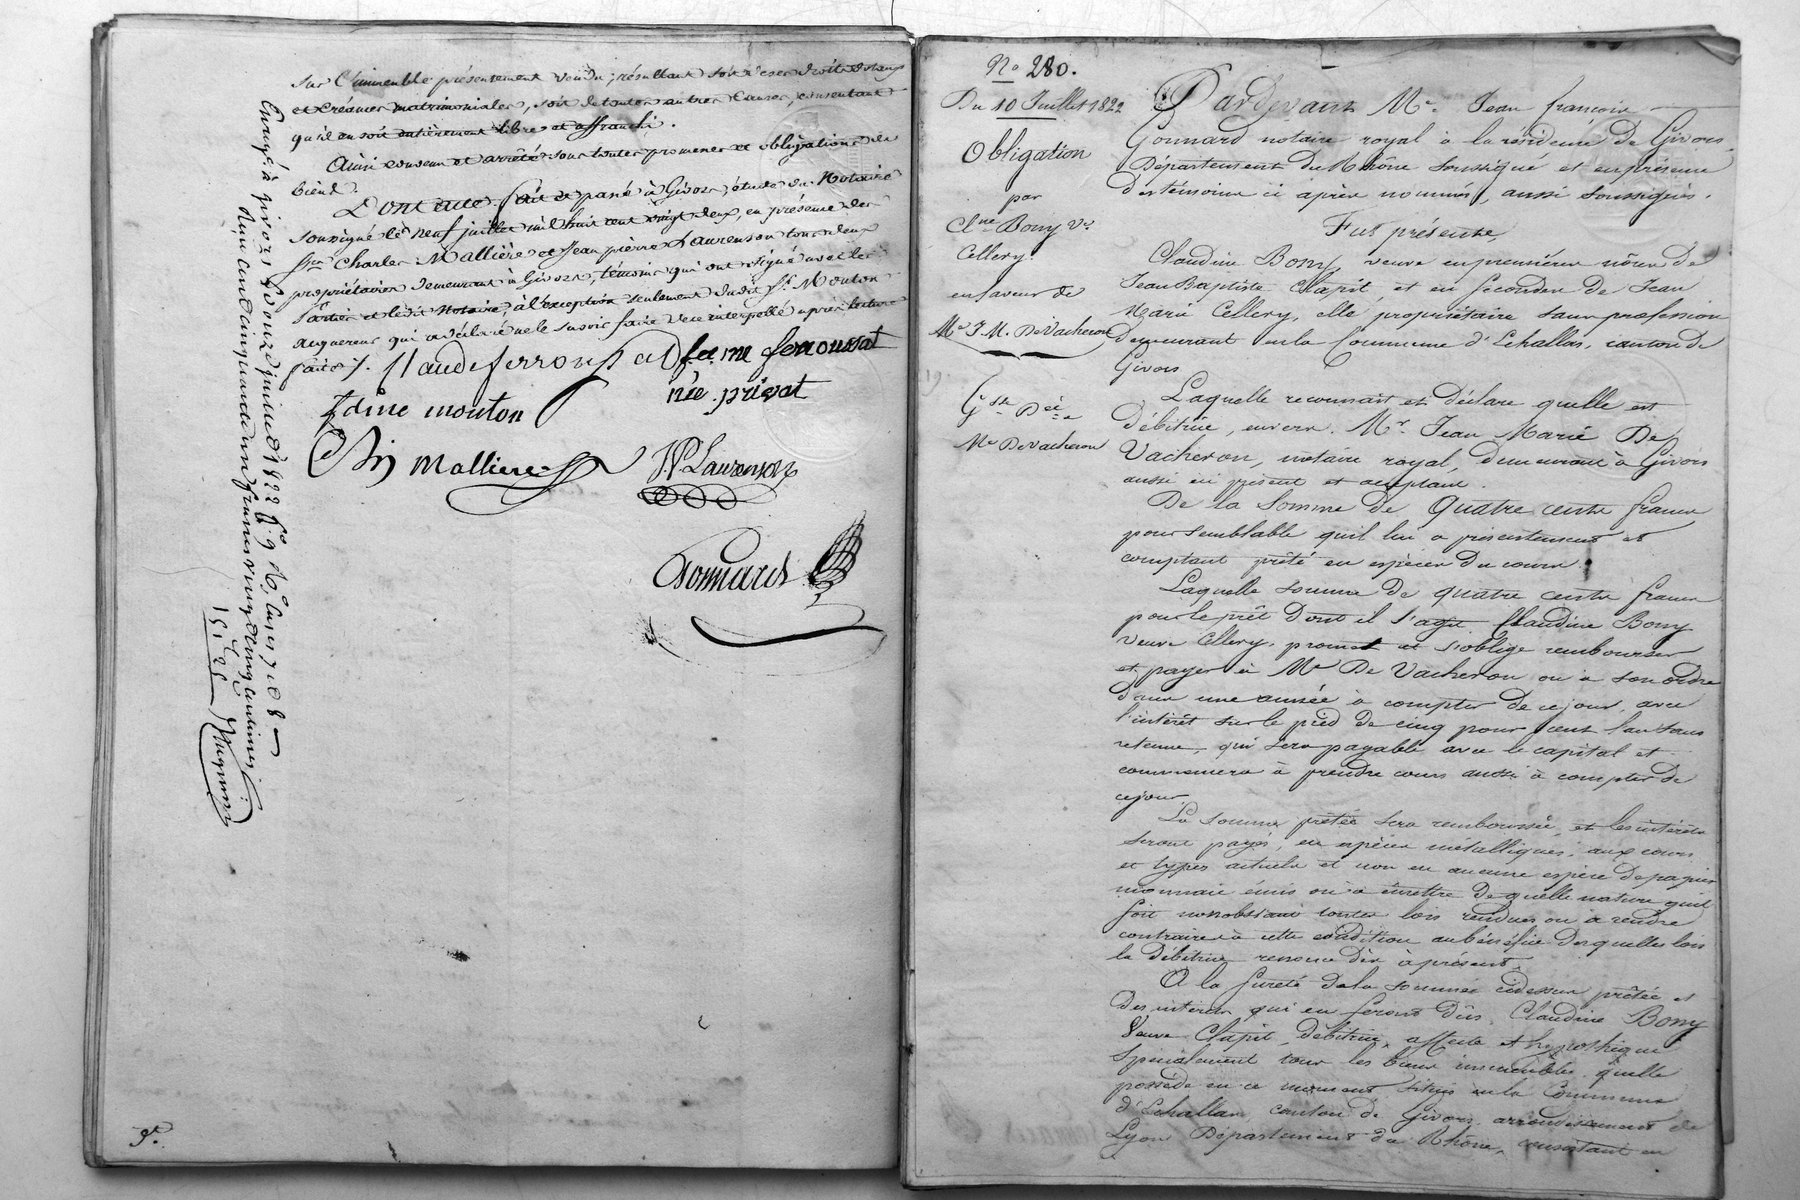 sur l'immeuble présentement vendu, résultant soit de ses droits dotaux
et créances matrimoniales, soit de toutes autres causes, consentant
qu'il en soit entièrement libre et affranchi.
Ainsi convenu et arrêté sous toutes promesses et obligations de
biens.
Dont acte. fait et passé à Givors, étude du Notaire
soussigné le neuf juillet mil huit cent vingt deux, en présence des
Srs Charles Mallière et Jean pierre Laurenson tous deux
propriétaires demeurant à Givors, témoins qui ont signé avec les
parties et ledit Notaire, à l'exception seulement dudit Sr. Mouton
acquereur qui a déclaré ne le savoir faire de ce interpellé après lecture
faite /.
Claude ferroussat fe.me ferroussat
née privat
fdme mouton
Chs Malliere JP Laurenson
Gonnard
Enregé à givors le douze juillet 1822 fo 9 Ro Cases 7 et 8
Reçu cent cinquante un francs vingt cinq centimes
Huguin
No 280.
Du 10 Juillet 1822
Obligation
par
Cl.ne Bony Ve
Cellery.
en faveur de
Me J. M. De Vacheron
Gsse Dée à
Me De Vacheron
Pardevant Me. Jean françois
Gonnard notaire royal à la résidence de Givors,
Département du Rhône soussigné et en présence
des témoins ci après nommés, aussi soussignés.
Fut présente,
Claudine Bony, veuve en premières nôces de
Jean Baptiste Clapit, et en secondes de Jean
Marie Cellery, elle propriétaire sans profession
demeurant en la Commune d'Echallas, canton de
Givors
Laquelle reconnait et déclare quelle est
débitrice, envers Mr. Jean Marie De
Vacheron, notaire royal, demeurant à Givors
aussi ici présent et acceptant.
De la Somme de quatre cents francs
pour semblable qu'il lui a présentement et
comptant prêté en espèces du cours.
Laquelle somme de quatre cents francs
pour le prêt dont il s'agit Claudine Bony
veuve Cellery, promet et s'oblige rembourser
et payer à Me De Vacheron ou à son ordre
dans une année à compter de ce jour, avec
l'intérêt sur le pied de cinq pour cent l'an sans
retenue, qui sera payable avec le capital et
commencera à prendre cours aussi à compter de
ce jour.
La somme prêtée sera remboursée, et les intérêts
seront payés, en espèces métalliques, aux cours
et types actuels et non en aucune espèce de papier
monnaie émis ou à émettre de quelle nature qu'il
soit nonobstant toutes lois rendues ou à rendre
contraires à cette condition au bénéfice desquelles lois
la débitrice renonce dès à présent.
A la sureté de la somme cidessus prêtée et
des intérêts qui en seront dûs, Claudine Bony
Veuve Clapit, débitrice, affecte et hypothèque
spécialement tous les biens immeubles quelle
possède en ce moment situés en la Commune
d'Echallas, canton de Givors arrondissement de
Lyon Département du Rhône, consistant en